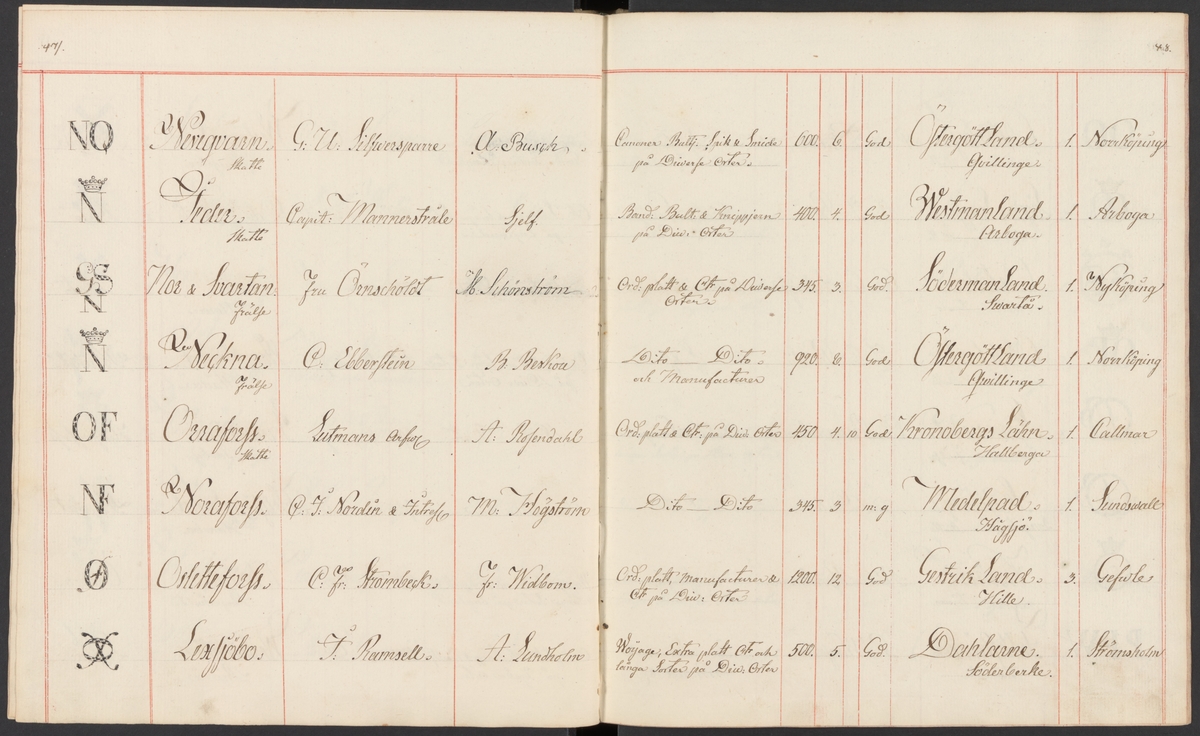 47.
48.
NQ Nevigvarn G: U: Silfversparre A: Busch Canoner Bultj: Spik & Smide 600. 6. God ÖstergöttLand 1. Norrköping
Skatte på Diverse Orter. Qvillinge
N Feder. Capit: Mannerstråle Sjelf. Band: Bult & Knippjern 400. 4. God WestmanLand 1. Arboga
Skatte på Div: Orter Arboga.
N Nor & Svartån Fru Örnschöldt M. Schönström Ord: platt & Ctr på Diverse 345. 3. God. SödermanLand 1. Nyköping
Frälse Orter. Swarta.
N Neckna C. Ebberstein B. Berkou Dito Dito 920. God ÖstergöttLand 1. Norrköping
Frälse och Manufacturer Qwillinge
OF Orraforss. Lutmans A: Rosendahl Ord: platt & Ctr: på Div: Orter 450 4. 10 God Kronobergs Lähn. 1. Callmar
Skatte Hallberga
NF Noraforss. C: F: Nordin & M: Högström Dito Dito 345. 3 m: g Medelpad. 1. Sundswall
Hägsjö.
Osletteforss. C: Fr: Strömbeck. Fr: Widbom. Ord: platt, Manufacturer & 1200. 12 God GestrikLand. 3. Gefwle
Ctr på Div: Orter Hille.
Lexsjöbo. F: Ramsell. A: Lundholm Woyage, Extra platt Ctr och 500. 5. God. Dahlarne. 1. Strömsholm
långa Sorter på Div: Orter Söderberke.